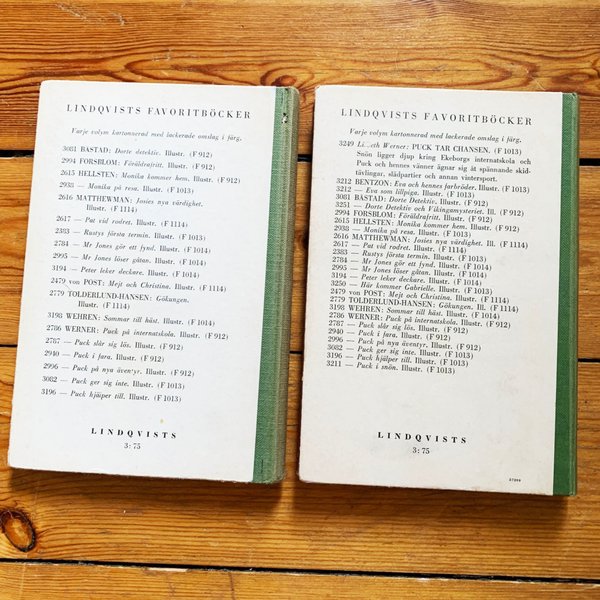 LINDQVISTS FAVORITBÖCKER
Varje volym kartonnerad med lackerade omslag i färg.
3081 BASTAD: Dorte detektiv. Illustr. (F 912)
2994 FORSBLOM: Föräldrafritt. Illustr. (F 912)
2615 HELLSTEN: Monika kommer hem. Illustr. (F 912)
2938 — Monika på resa. Illustr. (F 1013)
2616 MATTHEWMAN: Josies nya värdighet.
Illustr. (F 1114)
2617 — Pat vid rodret. Illustr. (F 1114)
2383 — Rustys första termin. Illustr. (F 1013)
2784 — Mr Jones gör ett fynd. Illustr. (F 1014)
2995 — Mr Jones löser gåtan. Illustr. (F 1014)
3194 — Peter leker deckare. Illustr. (F 1014)
2479 von POST: Mejt och Christina. Illustr. (F 1114)
2779 TOLDERLUND-HANSEN: Gökungen.
Illustr. (F 1114)
3198 WEHREN: Sommar till häst. Illustr. (F 1014)
2786 WERNER: Puck på internatskola. Illustr. (F 912)
2787 — Puck slår sig lös. Illustr. (F 912)
2940 — Puck i fara. Illustr. (F 912)
2996 — Puck på nya äventyr. Illustr. (F 912)
3082 — Puck ger sig inte. Illustr. (F 1013)
3196 — Puck hjälper till. Illustr. (F 1013)
LINDQVISTS
3:75
LINDQVISTS FAVORITBÖCKER
Varje volym kartonnerad med lackerade omslag i färg.
3249 Werner: PUCK TAR CHANSEN. (F 1013)
Snön ligger djup kring Ekeborgs internatskola och
Puck och hennes vänner ägnar sig åt spännande skid-
tävlingar, slädpartier och annan vintersport.
3212 BENTZON: Eva och hennes farbröder. (F 1013)
3212 — Eva som lillpiga. (F 1013)
3081 BASTAD: Dorte Detektiv. Illustr. (F 912)
3251 — Dorte Detektiv och Vikingamysteriet. Ill. (F 912)
2994 FORSBLOM: Föräldrafritt. Illustr. (F 912)
2615 HELLSTEN: Monika kommer hem. (F 912)
2938 — Monika på resa. (F 1013)
2616 MATTHEWMAN: Josies nya värdighet. Ill. (F 1114)
2617 — Pat vid rodret. Illustr. (F 1114)
2383 — Rustys första termin. Illustr. (F 1013)
2784 — Mr Jones gör ett fynd. Illustr. (F 1014)
2995 — Mr Jones löser gåtan. Illustr. (F 1014)
3194 — Peter leker deckare. Illustr. (F 1014)
3250 — Här kommer Gabrielle. Illustr. (F 1013)
2479 von POST: Mejt och Christina. Ill. (F 1114)
2779 TOLDERLUND-HANSEN: Gökungen. Ill. (F 1114)
3198 WEHREN: Sommar till häst. Illustr. (F 1014)
2786 WERNER: Puck på internatskola. Illustr. (F 912)
2787 — Puck slår sig lös. Illustr. (F 912)
2940 — Puck i fara. Illustr. (F 912)
2996 — Puck på nya äventyr. Illustr. (F 912)
3082 — Puck ger sig inte. Illustr. (F 1013)
3196 — Puck hjälper till. Illustr. (F 1013)
3211 — Puck i snön. Illustr. (F 1013)
LINDQVISTS
3:75